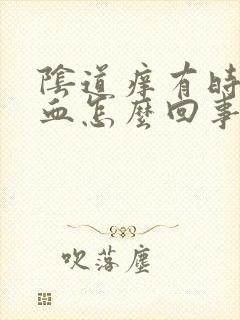 陰道痒有時
血怎麼回事
吹落塵